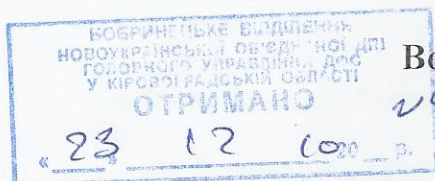 БОБРИНЕЦЬКЕ ВІДДІЛЕННЯ
НОВОУКРАЇНСЬКОЇ ОБ'ЄДНАНОЇ ДПІ
ГОЛОВНОГО УПРАВЛІННЯ ДФС
У КІРОВОГРАДСЬКІЙ ОБЛАСТІ
ОТРИМАНО
« 23 » 12 20 р.